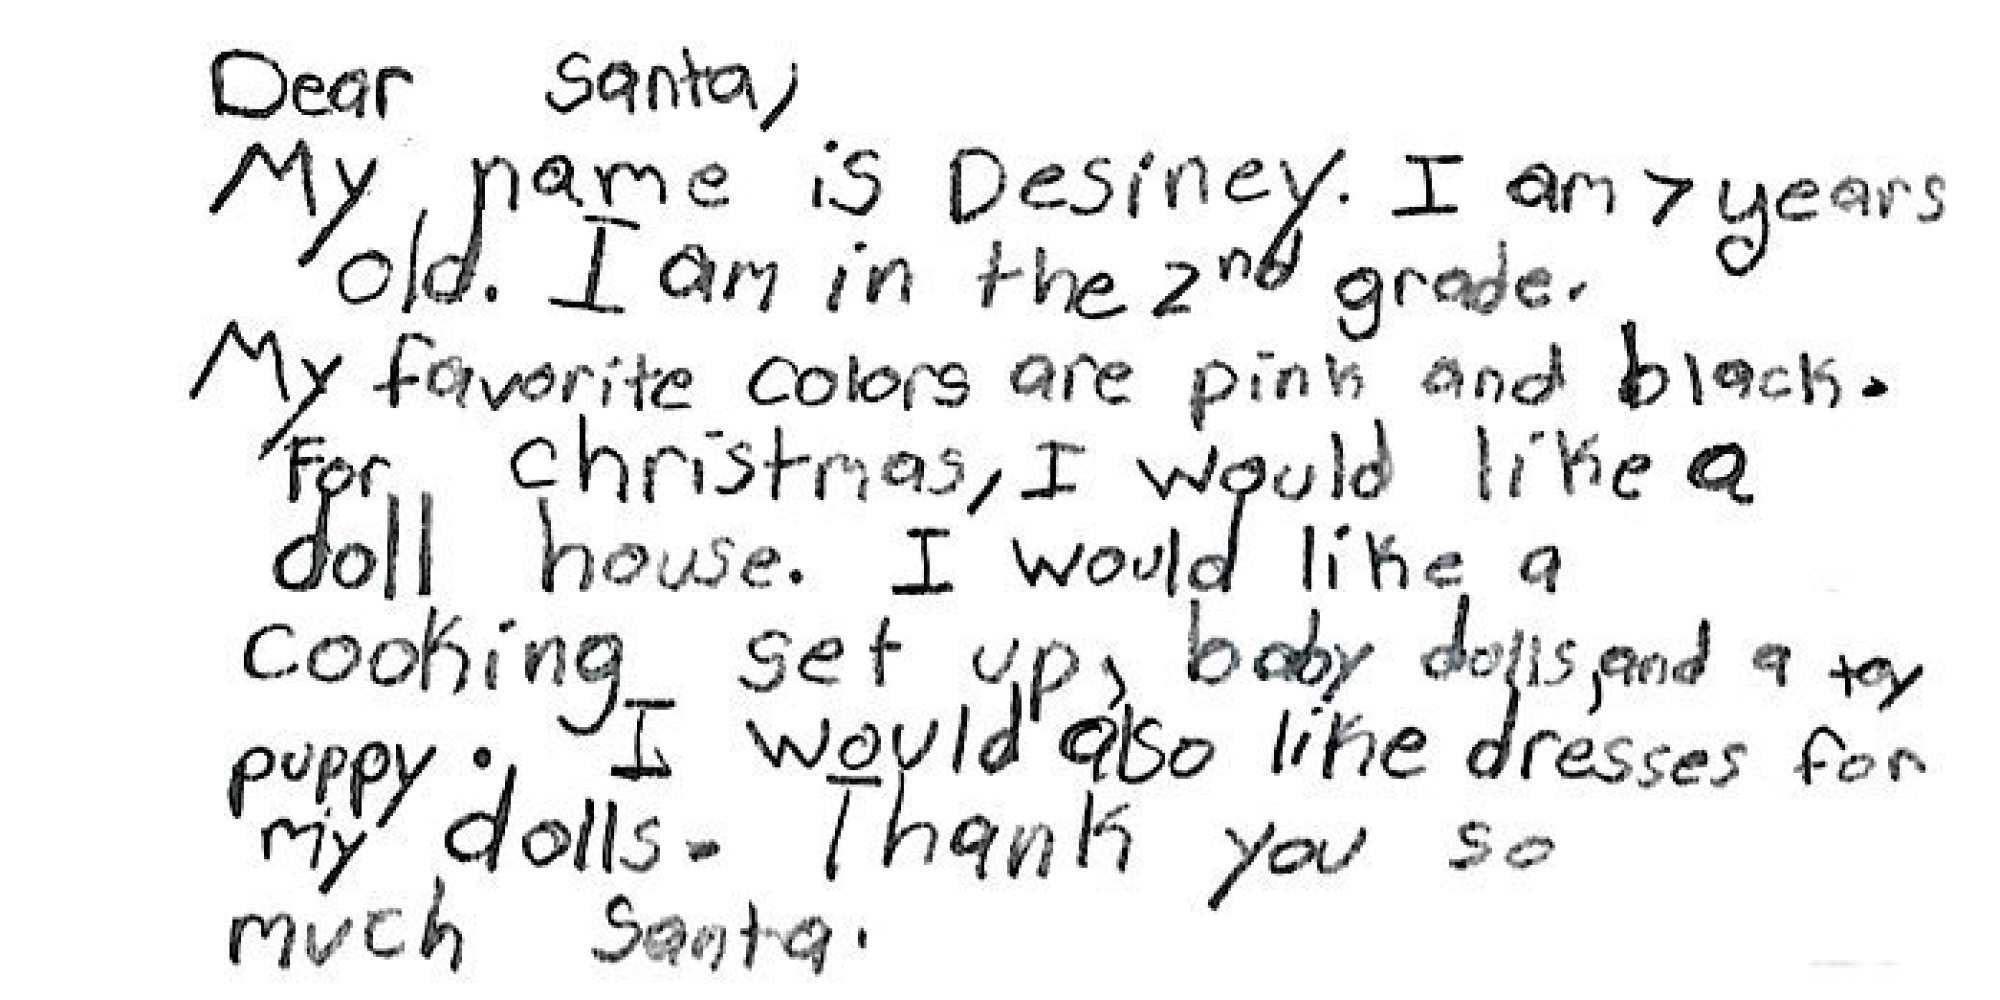 Dear Santa,
My name is Desiney. I am 7 years
old. I am in the 2nd grade.
My favorite colors are pink and black.
For christmas, I would like a
doll house. I would like a
cooking set up, baby dolls, and a toy
puppy. I would also like dresses for
my dolls. Thank you so
much Santa.